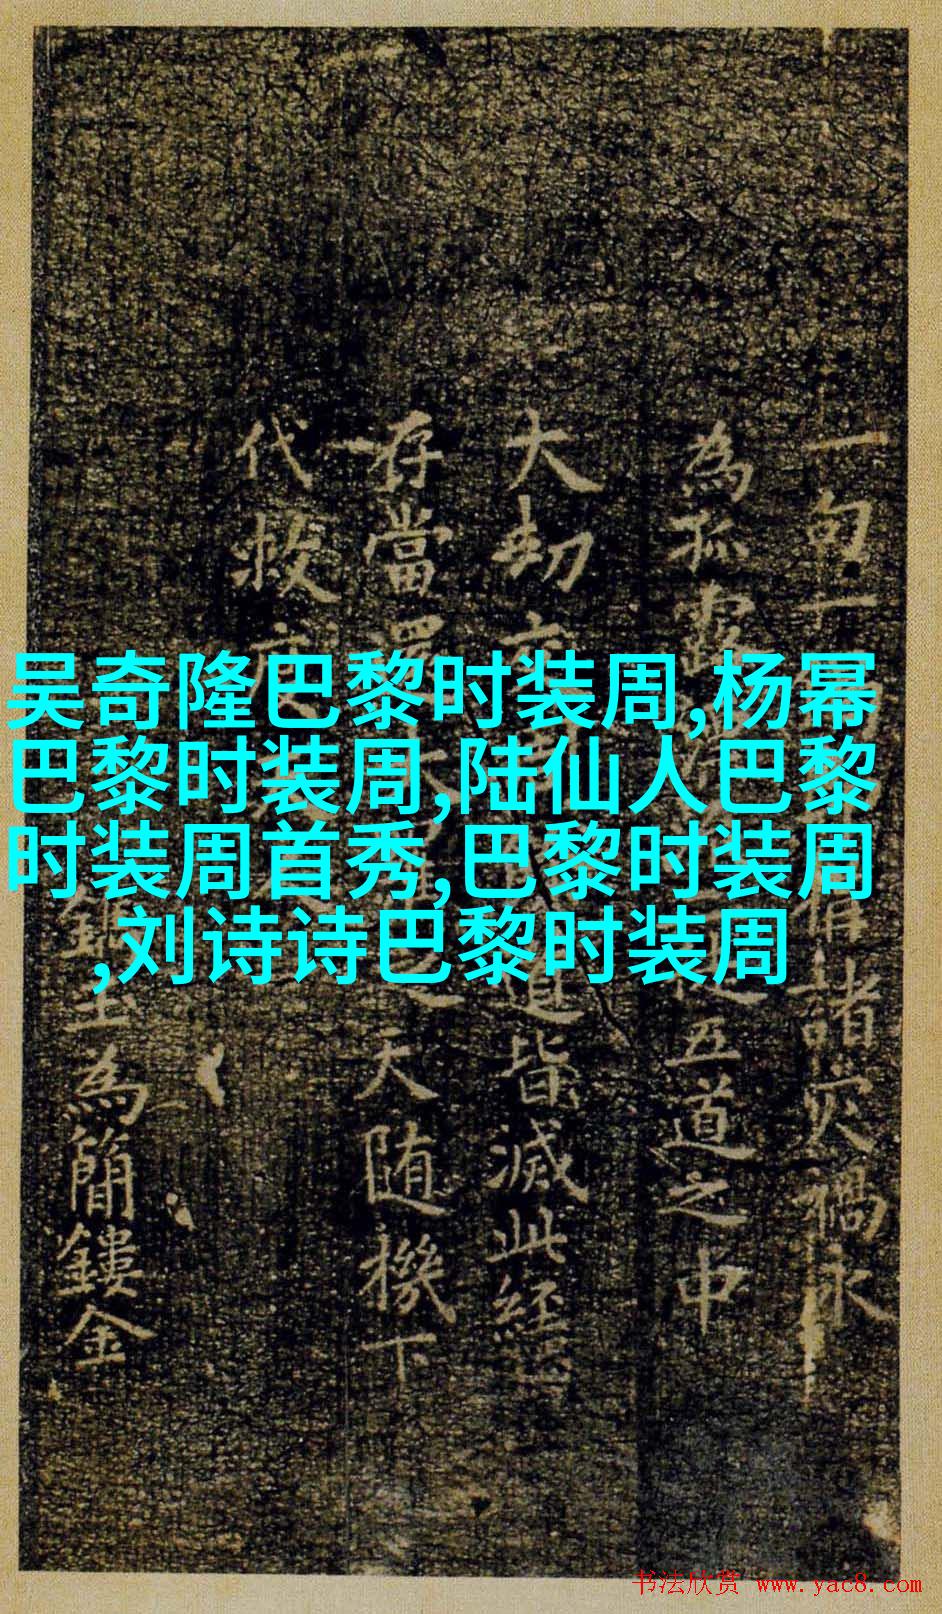 吴奇隆巴黎时装周,杨幂
巴黎时装周,陆仙人巴黎
时装周首秀,巴黎时装周
,刘诗诗巴黎时装周
一句一 諸灾禍永
為孤露 五道之中
大劫 皆滅此經
存當還 天随機下
代救
玉為簡鏤金
书法欣赏 www.yac8.com